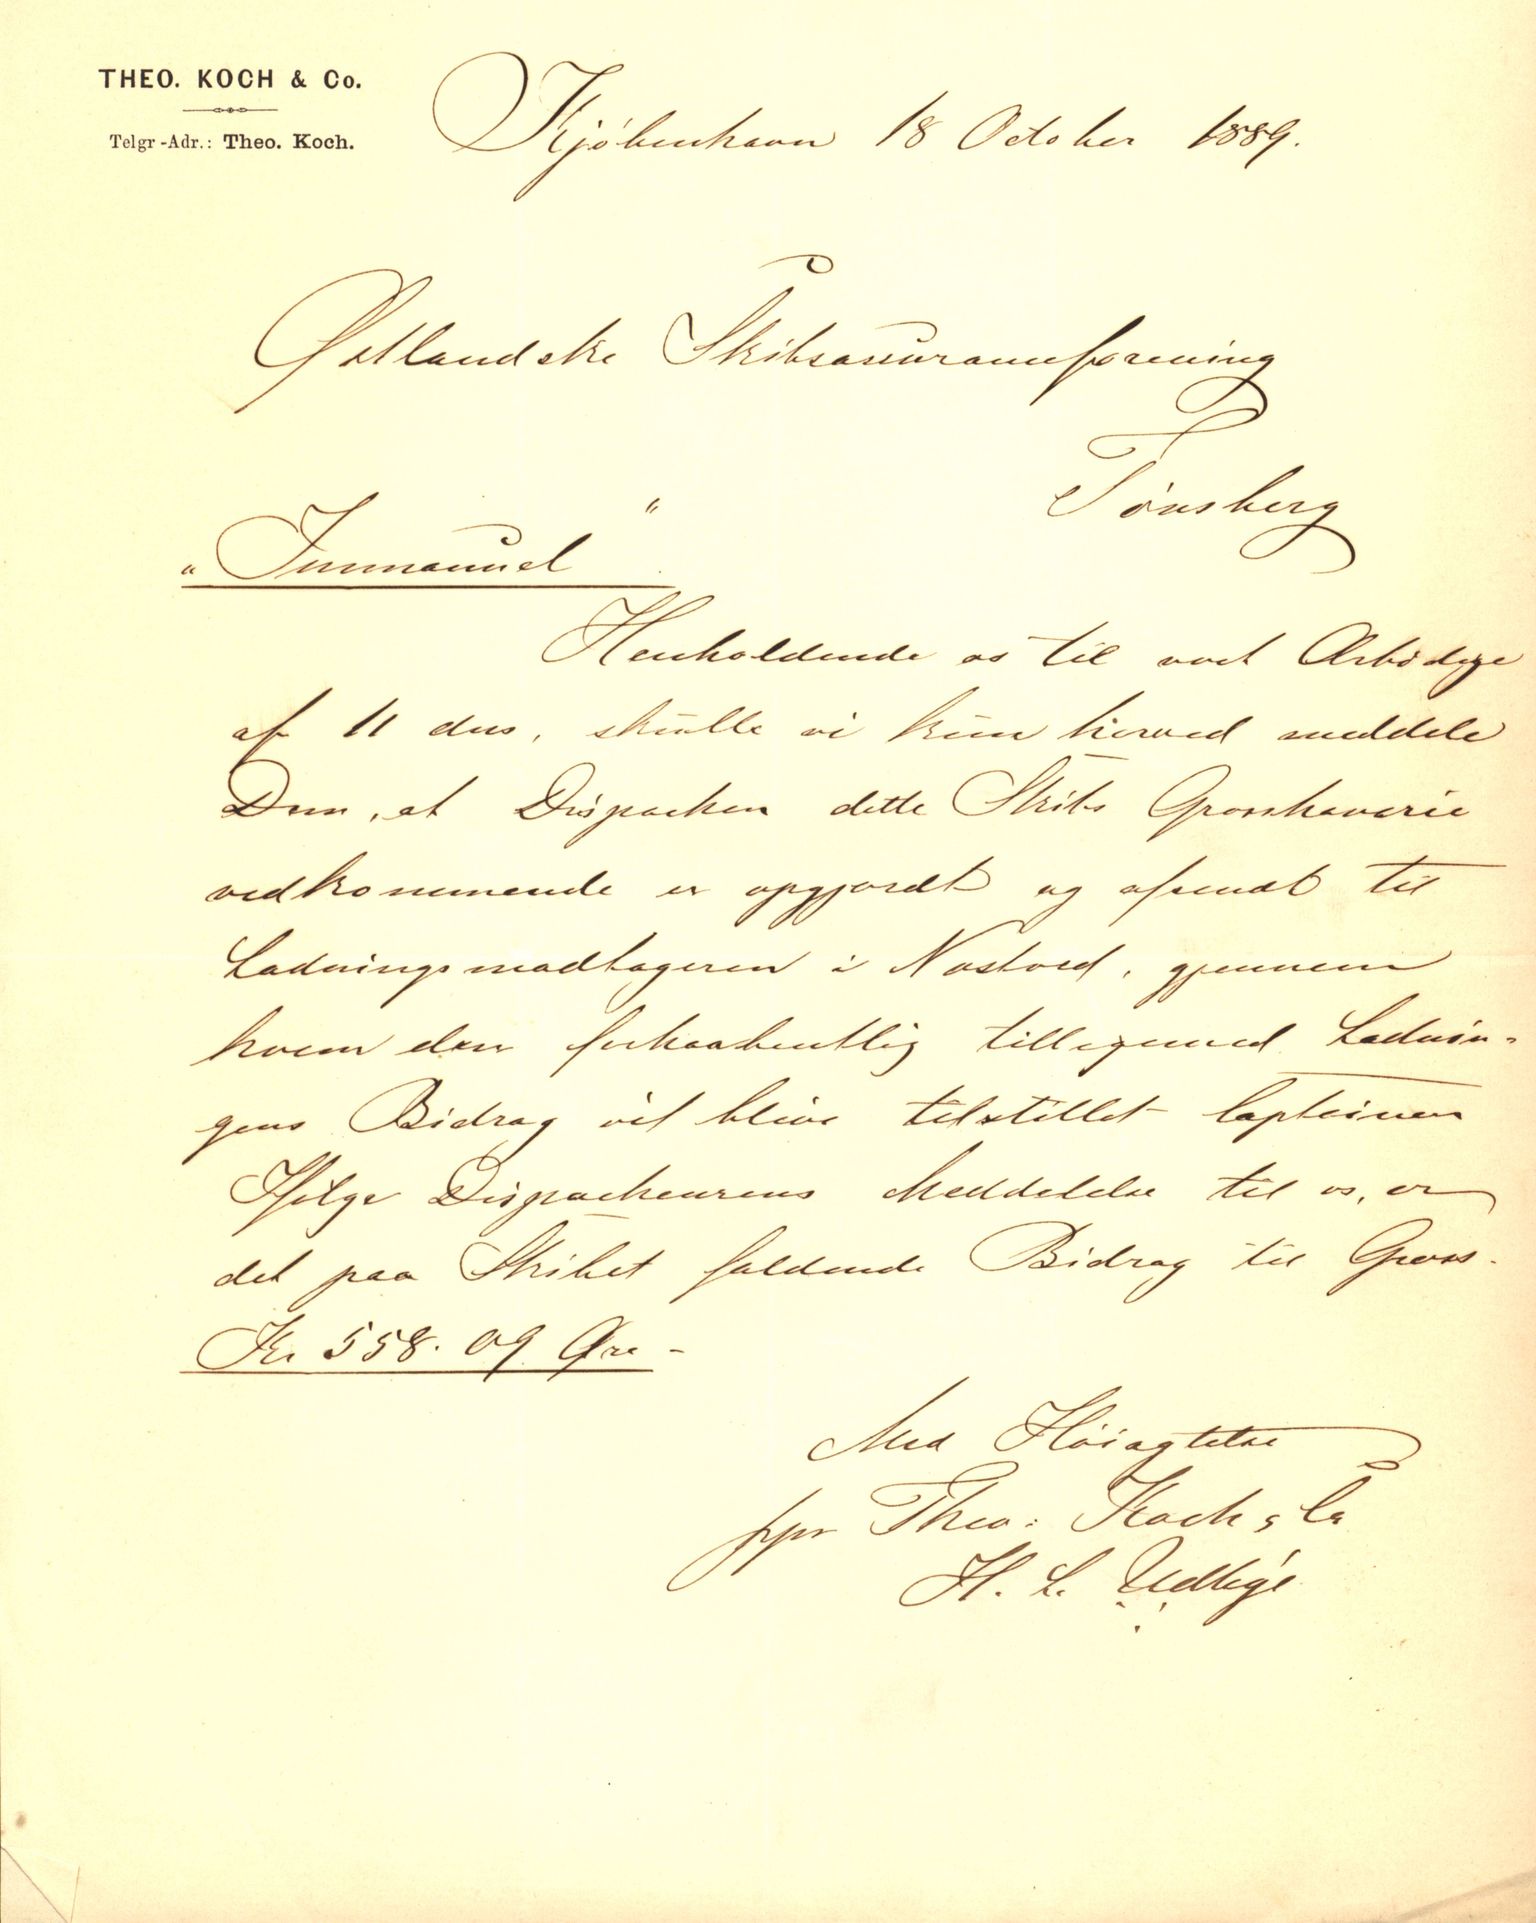 THEO. KOCH & Co.
Telgr-Adr.: Theo. Koch.
Kjóbenhavn 18 October 1889.
Østlandske Skibsassuranceforening
Tönsberg
"Immanuel"
Henholdende os til vort Ærbödige
af 11 ds, skulle vi kun herved meddele
Dem, at Dispachen dette Skibs Grosshavarie
vedkommende er opgjordt og afsendt til
Ladningsmodtageren i Nestved, gjennem
hvem den forhaabentlig tilligemed Ladnin-
gens Bidrag vil blive tilstillet Capteinen
Ifölge Dispacheurens Meddelelse til os, er
det paa Skibet faldende Bidrag til Gross-
Kr 558. 09 Øre -
Med Höiagtelse
ppr Theo: Koch & Co
H. L.